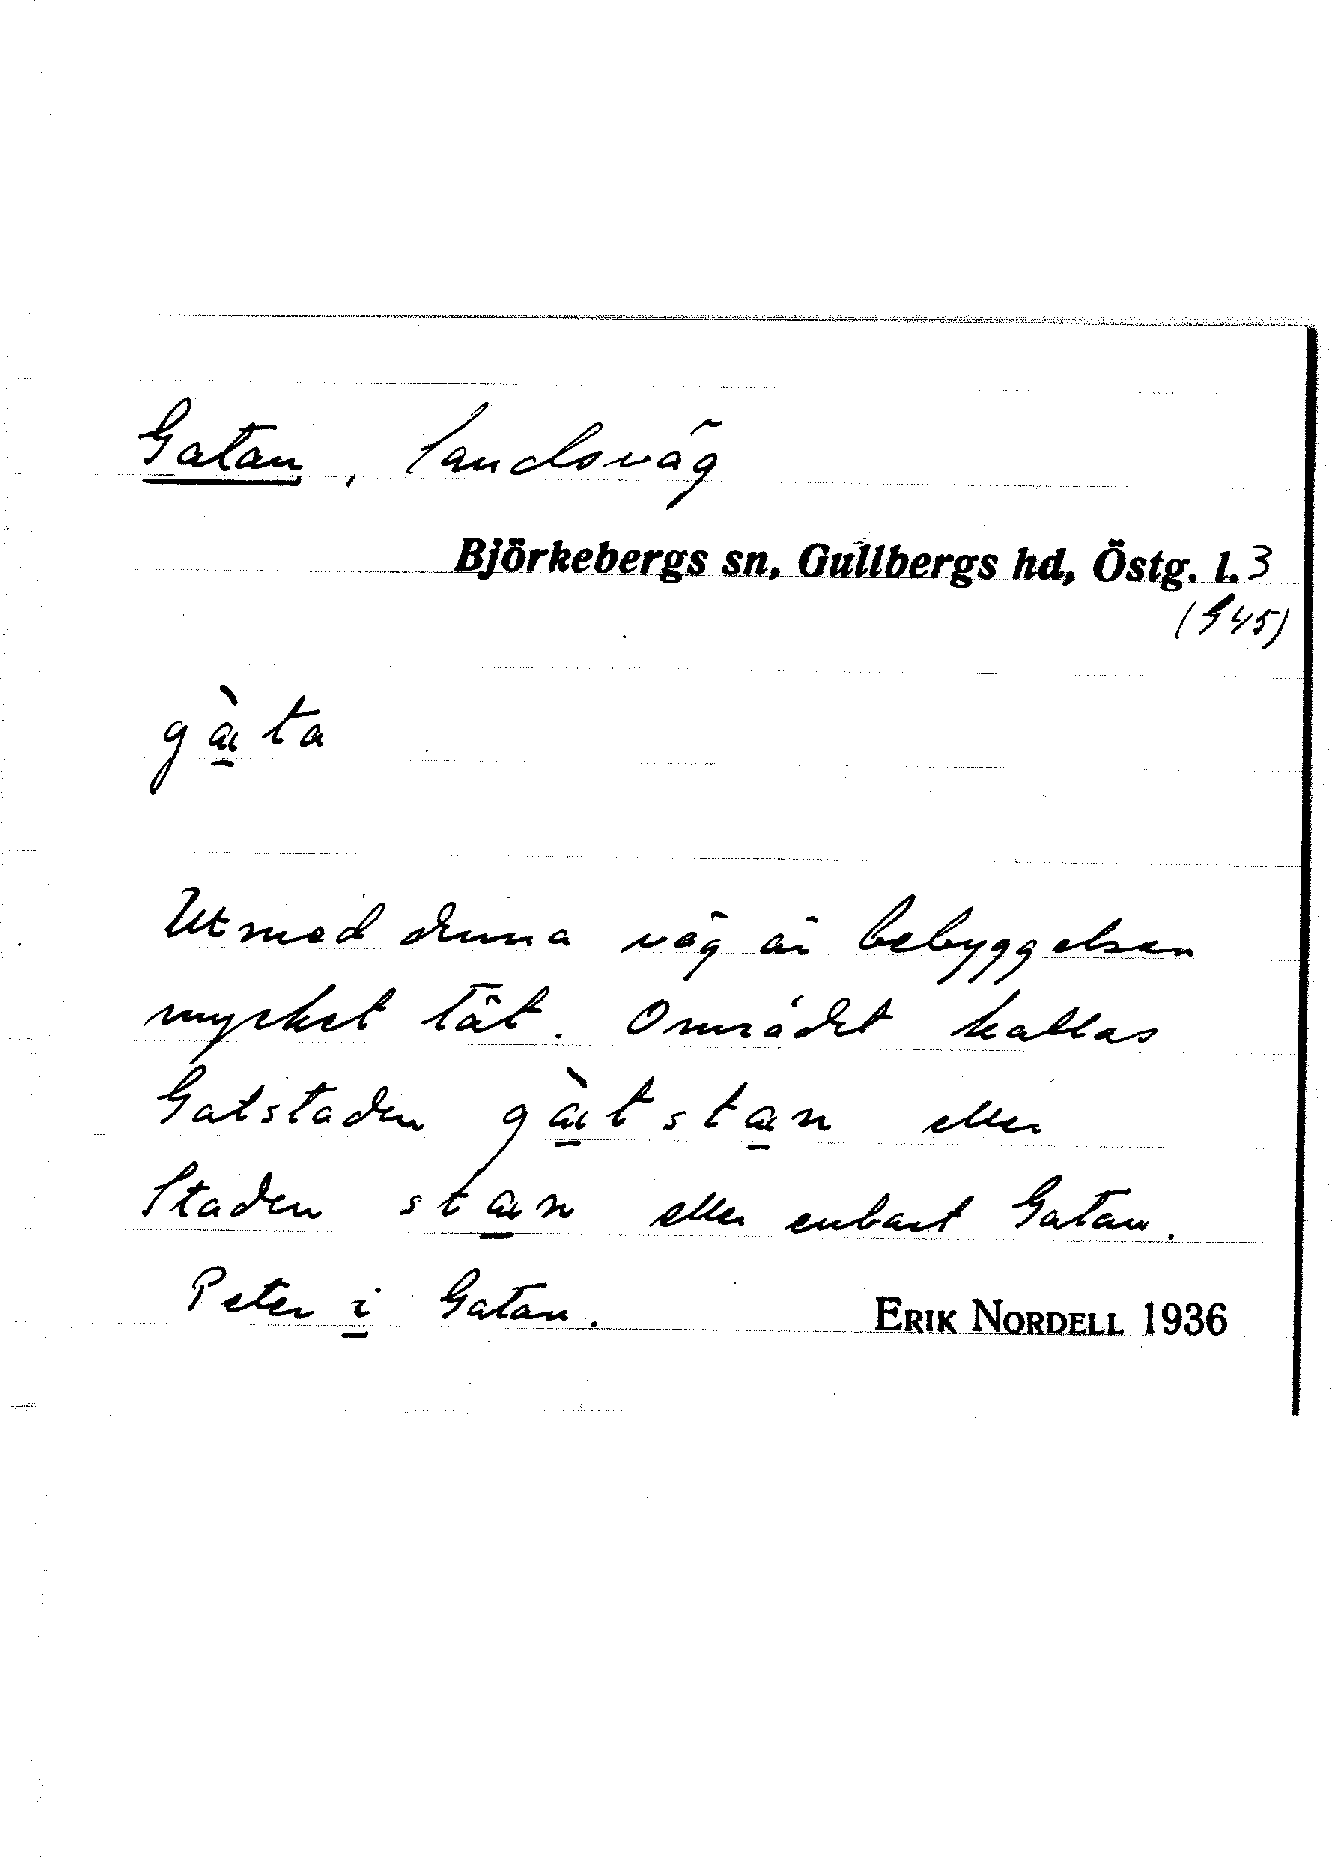 Gatan, landsväg
Björkebergs sn, Gullbergs hd, Östg. l. 3
(G45)
gàta
Utmed denna väg är bebyggelsen
mycket tät. Området kallas
Gatstaden gàtstan eller
Staden stan eller enbart Gatan.
Peter i Gatan.
ERIK NORDELL 1936